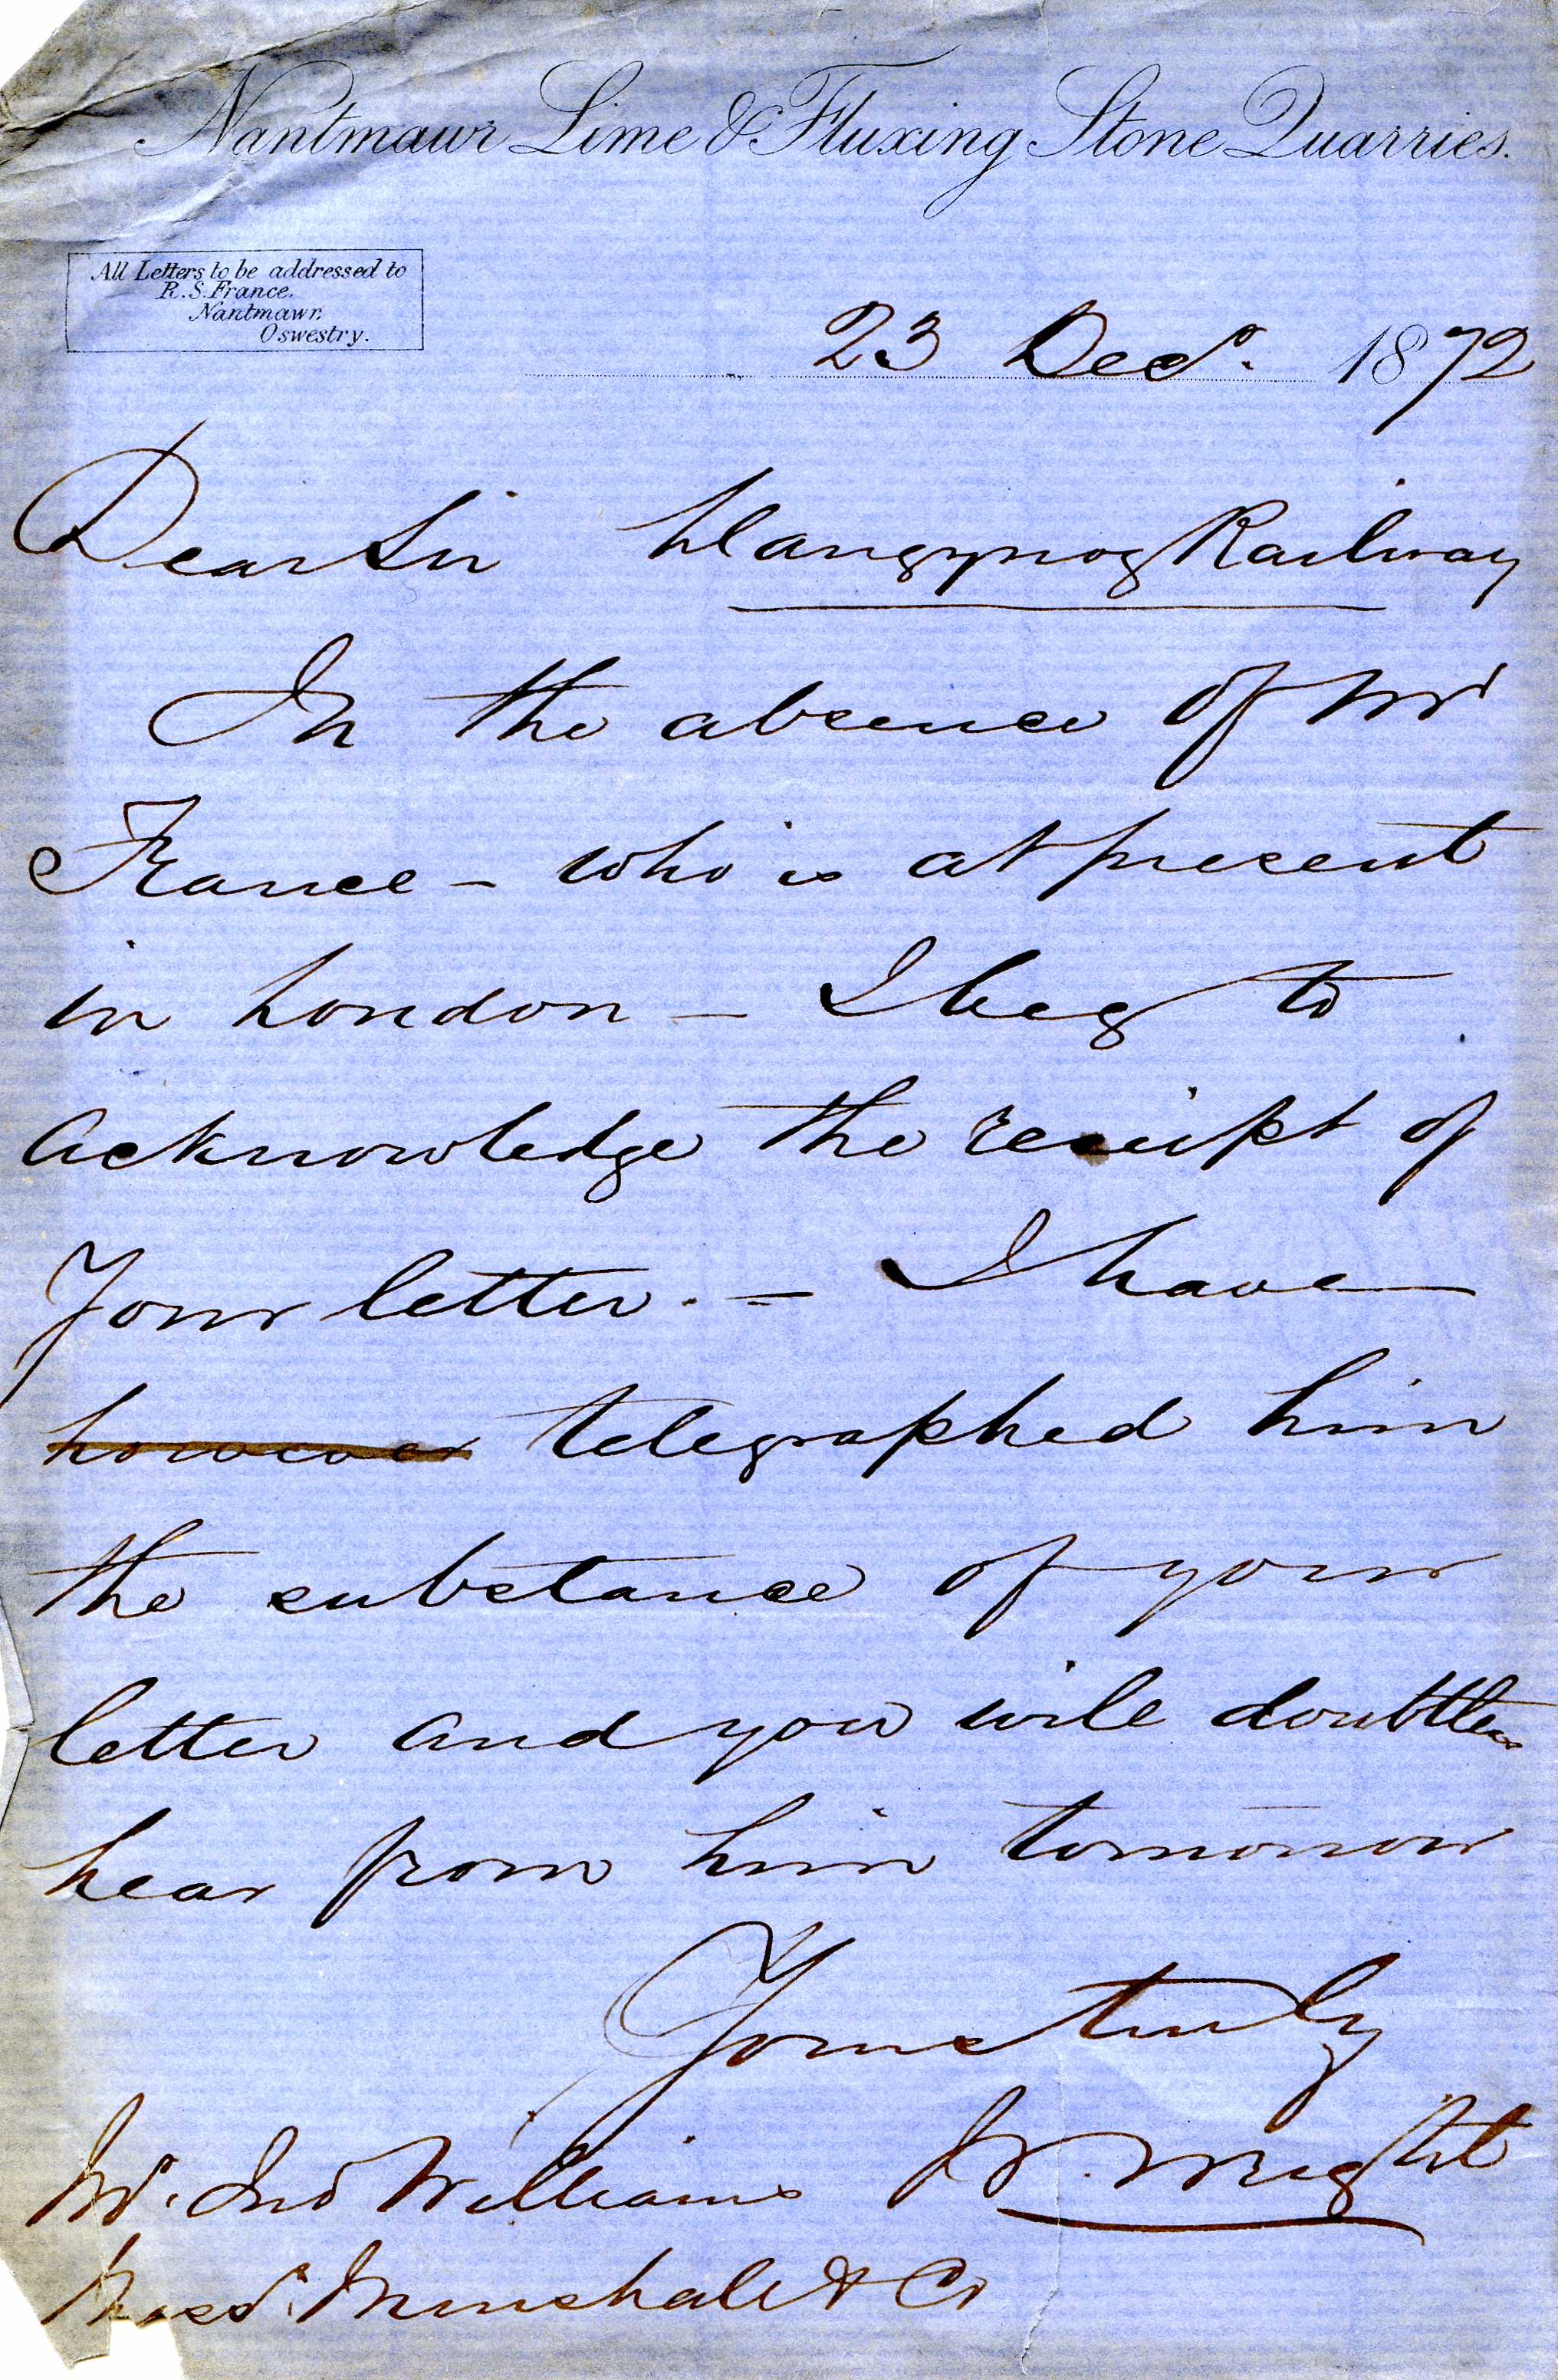 Nantmawr Lime & Fluxing Stone Quarries.
All Letters to be addressed to
R.S. France.
Nantmawr.
Oswestry.
23 Decr. 1872
Dear Sir Llangynog Railway
In the absence of Mr
France – who is at present
in London – I beg to
acknowledge the receipt of
Your letter. – I have
however telegraphed him
the substance of your
letter and you will doubtless
hear from him tomorrow
Yours truly
W. Wright
Mr. Jno Williams
Messrs. Minshall & Co